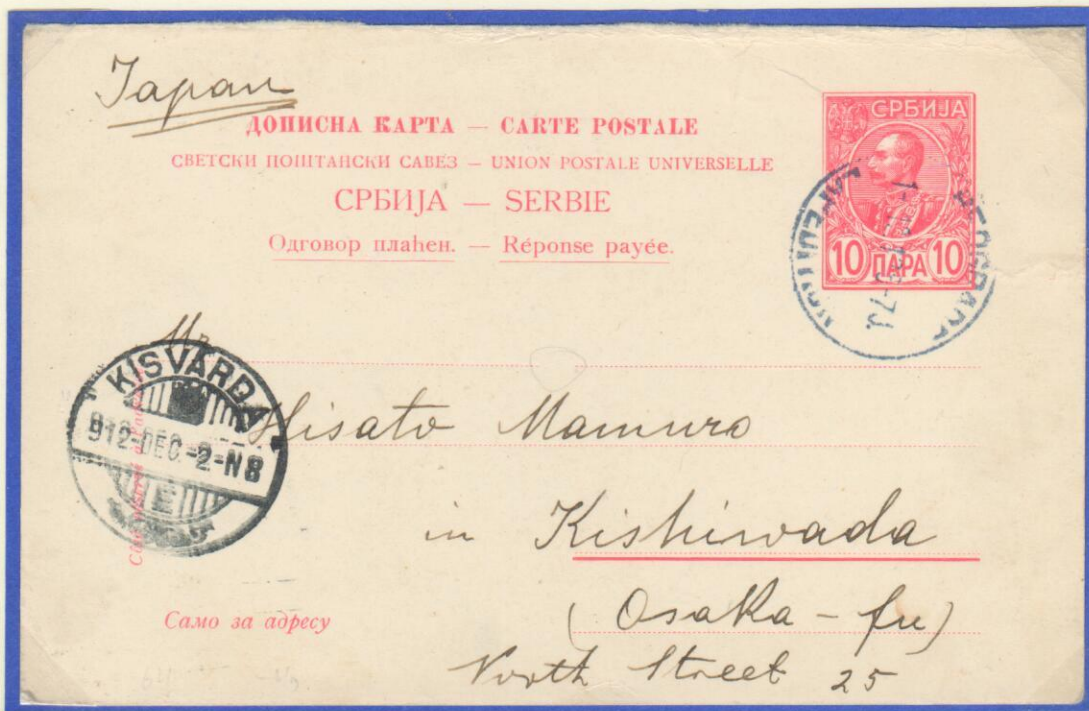 Japan
ДОПИСНА КАРТА — CARTE POSTALE
СВЕТСКИ ПОШТАНСКИ САВЕЗ — UNION POSTALE UNIVERSELLE
СРБИЈА — SERBIE
Одговор плаћен. — Réponse payée.
СРБИЈА
10 ПАРА 10
KISVÁRDA
912-DEC.-2-N8
Hisato Mamuro
in Kishiwada
(Osaka-fu)
North Street 25
Само за адресу